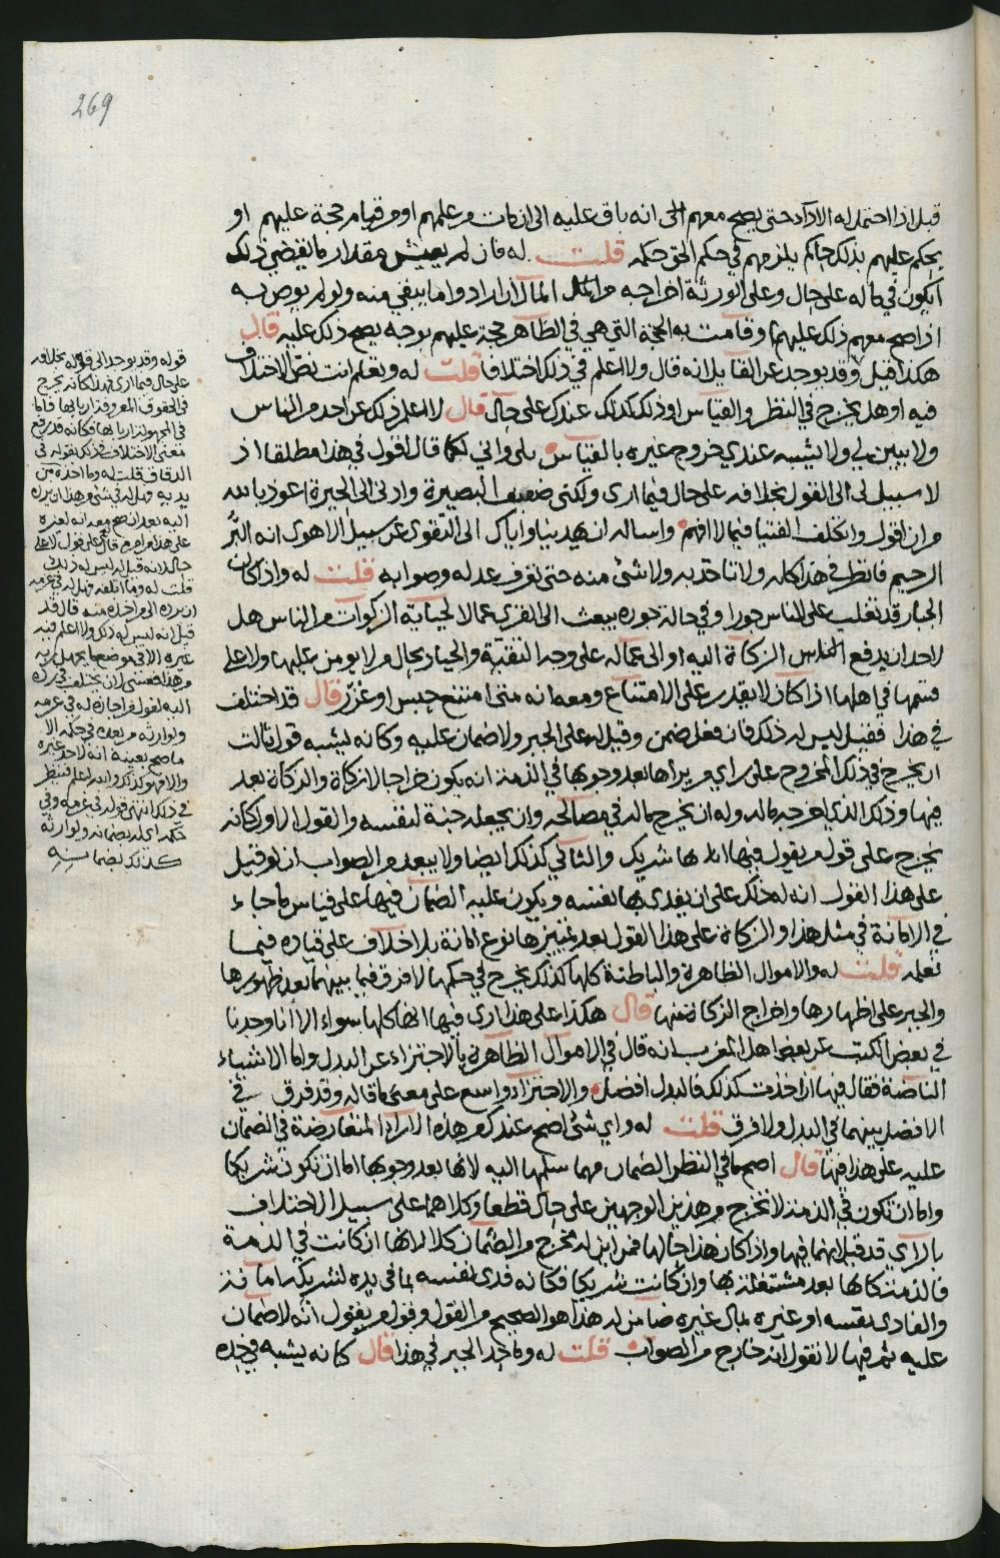 269
قبل اذا احتمل له الاداء حتى يصح معهم الحق انه باق عليه الى ان مات من علمهم او من قيام حجة عليهم او
يحكم عليهم بذلك حاكم يلزمهم في حكم الحق حكمه قلت له فان لم يعيش مقدار ما يقضي ذلك
ايكون في ماله على حال وعلى الورثة اخراجه من المال ان اراد واما يبقي منه ولو لم يوص به
اذا صح معهم ذلك عليهم او قامت به الحجة التي هي في الظاهر حجة عليهم بوجه يصح ذلك عليه قال
هكذا قيل وقد يوجد عن القايل انه قال ولا اعلم في ذلك اختلافا قلت له وتعلم انت نص الاختلاف
فيه او هل يخرج في النظر والقياس او ذلك كذلك عندك على حال قال لا اعلم ذلك عن احد من الناس
ولا يبين لي ولا يشبه عندي خروج غيره بالقياس بلى واني لكما قال لاقول في هذا مطلقا اذ
لا سبيل لي الى القول بخلافه على حال فيما ارى ولكني ضعيف البصيرة وادنى الى الحيرة اعوذ بالله
من ان اقول وان اتكلف الفتيا فيما لا افهم واساله ان يهدينا واياك الى التقوى عن سبيل الاهوى انه البر
الرحيم فانظر في هذا كله ولا تاخذ به ولا شئ منه حتى تعرف عدله وصوابه قلت له واذا كان
الجبار قد تغلب على الناس جورا وفي حالة جوره يبعث الى القرى عمالا لجباية الزكوات من الناس هل
لاحد ان يدفع الناس الزكاة اليه او الى عماله على وجه التقية والجبار بحال من لا يومن عليها ولا على
قسمها في اهلها اذا كان لا يقدر على الامتناع ومعه انه متى امتنع حبس او عزر قال قد اختلف
في هذا فقيل ليس له ذلك فان فعل ضمن وقيل له على الجبر ولا ضمان عليه وكانه يشبه قول ثالث
ان يخرج في ذلك المخروج على راي من يراها بعد وجوبها في الذمة انه يكون خراجا لا زكاة والزكاة بعد
فيها وذلك الذي اخرجه ماله وله ان يخرج ماله في مصالحه وان يجعله جنة لنفسه والقول الاول كانه
يخرج على قول من يقول فيها انها شريك والثاني كذلك ايضا ولا يبعد من الصواب ان لو قيل
على هذا القول انه له ذلك على ان يفدى بها نفسه ويكون عليه الضمان فيها على قياس ما جاء
في الامانة في مثل هذا والزكاة على هذا القول بعد تمييزها نوع امانة بلا خلاف على قياده فيما
نعلمه قلت له والاموال الظاهرة والباطنة كلها كذلك يخرج في حكمها لا فرق فيما بينهما بعد ظهورها
والجبر على اظهارها واخراج الزكاة منها قال هكذا على هذا ارى فيها انها كلها سواء الا انا وجدنا
في بعض الكتب عن بعض اهل المغرب انه قال في الاموال الظاهرة بالاجتزاء عن البدل واما الاشياء
الناضة فقال فيها ان اخذت كذلك فالبدل افضل والاجتزاء واسع على معنى ما قاله وقد فرق في
الافضل بينهما في البدل ولا فرق قلت له واي شئ اصح عندك من هذه الاراء المتعارضة في الضمان
عليه على هذا فيها قال اصح ما في النظر الضمان مهما سلمها اليه لانها بعد وجوبها اما ان تكون شريكا
واما ان تكون في الذمة لا تخرج من هذين الوجهين على حال قطعا وكلاهما على سبيل الاختلاف
بالراي قد قيل انهما فيها واذا كان هذا حالها فمن اين له مخرج من الضمان كلا لانها ان كانت في الذمة
فالذمة كانها بعد مشتغلة بها وان كانت شريكا فكانه فدى نفسه بما في يده لشريكه امانة
والفادى نفسه او غيره بمال غيره ضامن له هذا هو الصحيح من القول وقول من يقول انه لا ضمان
عليه ثم فيها لا نقول انه خارج من الصواب قلت له وما حد الجبر في هذا قال كانه يشبه في حده
قوله وقد يوجد الى قوله بخلافه
على حال فيما ارى فهذا كانه يخرج
في الحقوق المعروفة اربابها فاما
في المجهول اربابها فكانه قد رفع
معنى الاختلاف في ذلك بقوله في
الدقاق قلت له وما اخذه من
يديه قيل له في شئ وهذا ان يرد
اليه بعد ان صح معه انه لغيره
قلت له وما اتلفه فهل له في غرمه
ان يرده الى من اخذه منه قال قد
قيل انه ليس له ذلك ولا اعلم فيه
ما صح بعينه انه لاحد غيره
والا فهو كذلك والله اعلم فينظر
في ذلك انتهى قوله في غرمه وفي
حكمه اي له بضمانه ولوارثه
كذلك بضمانه